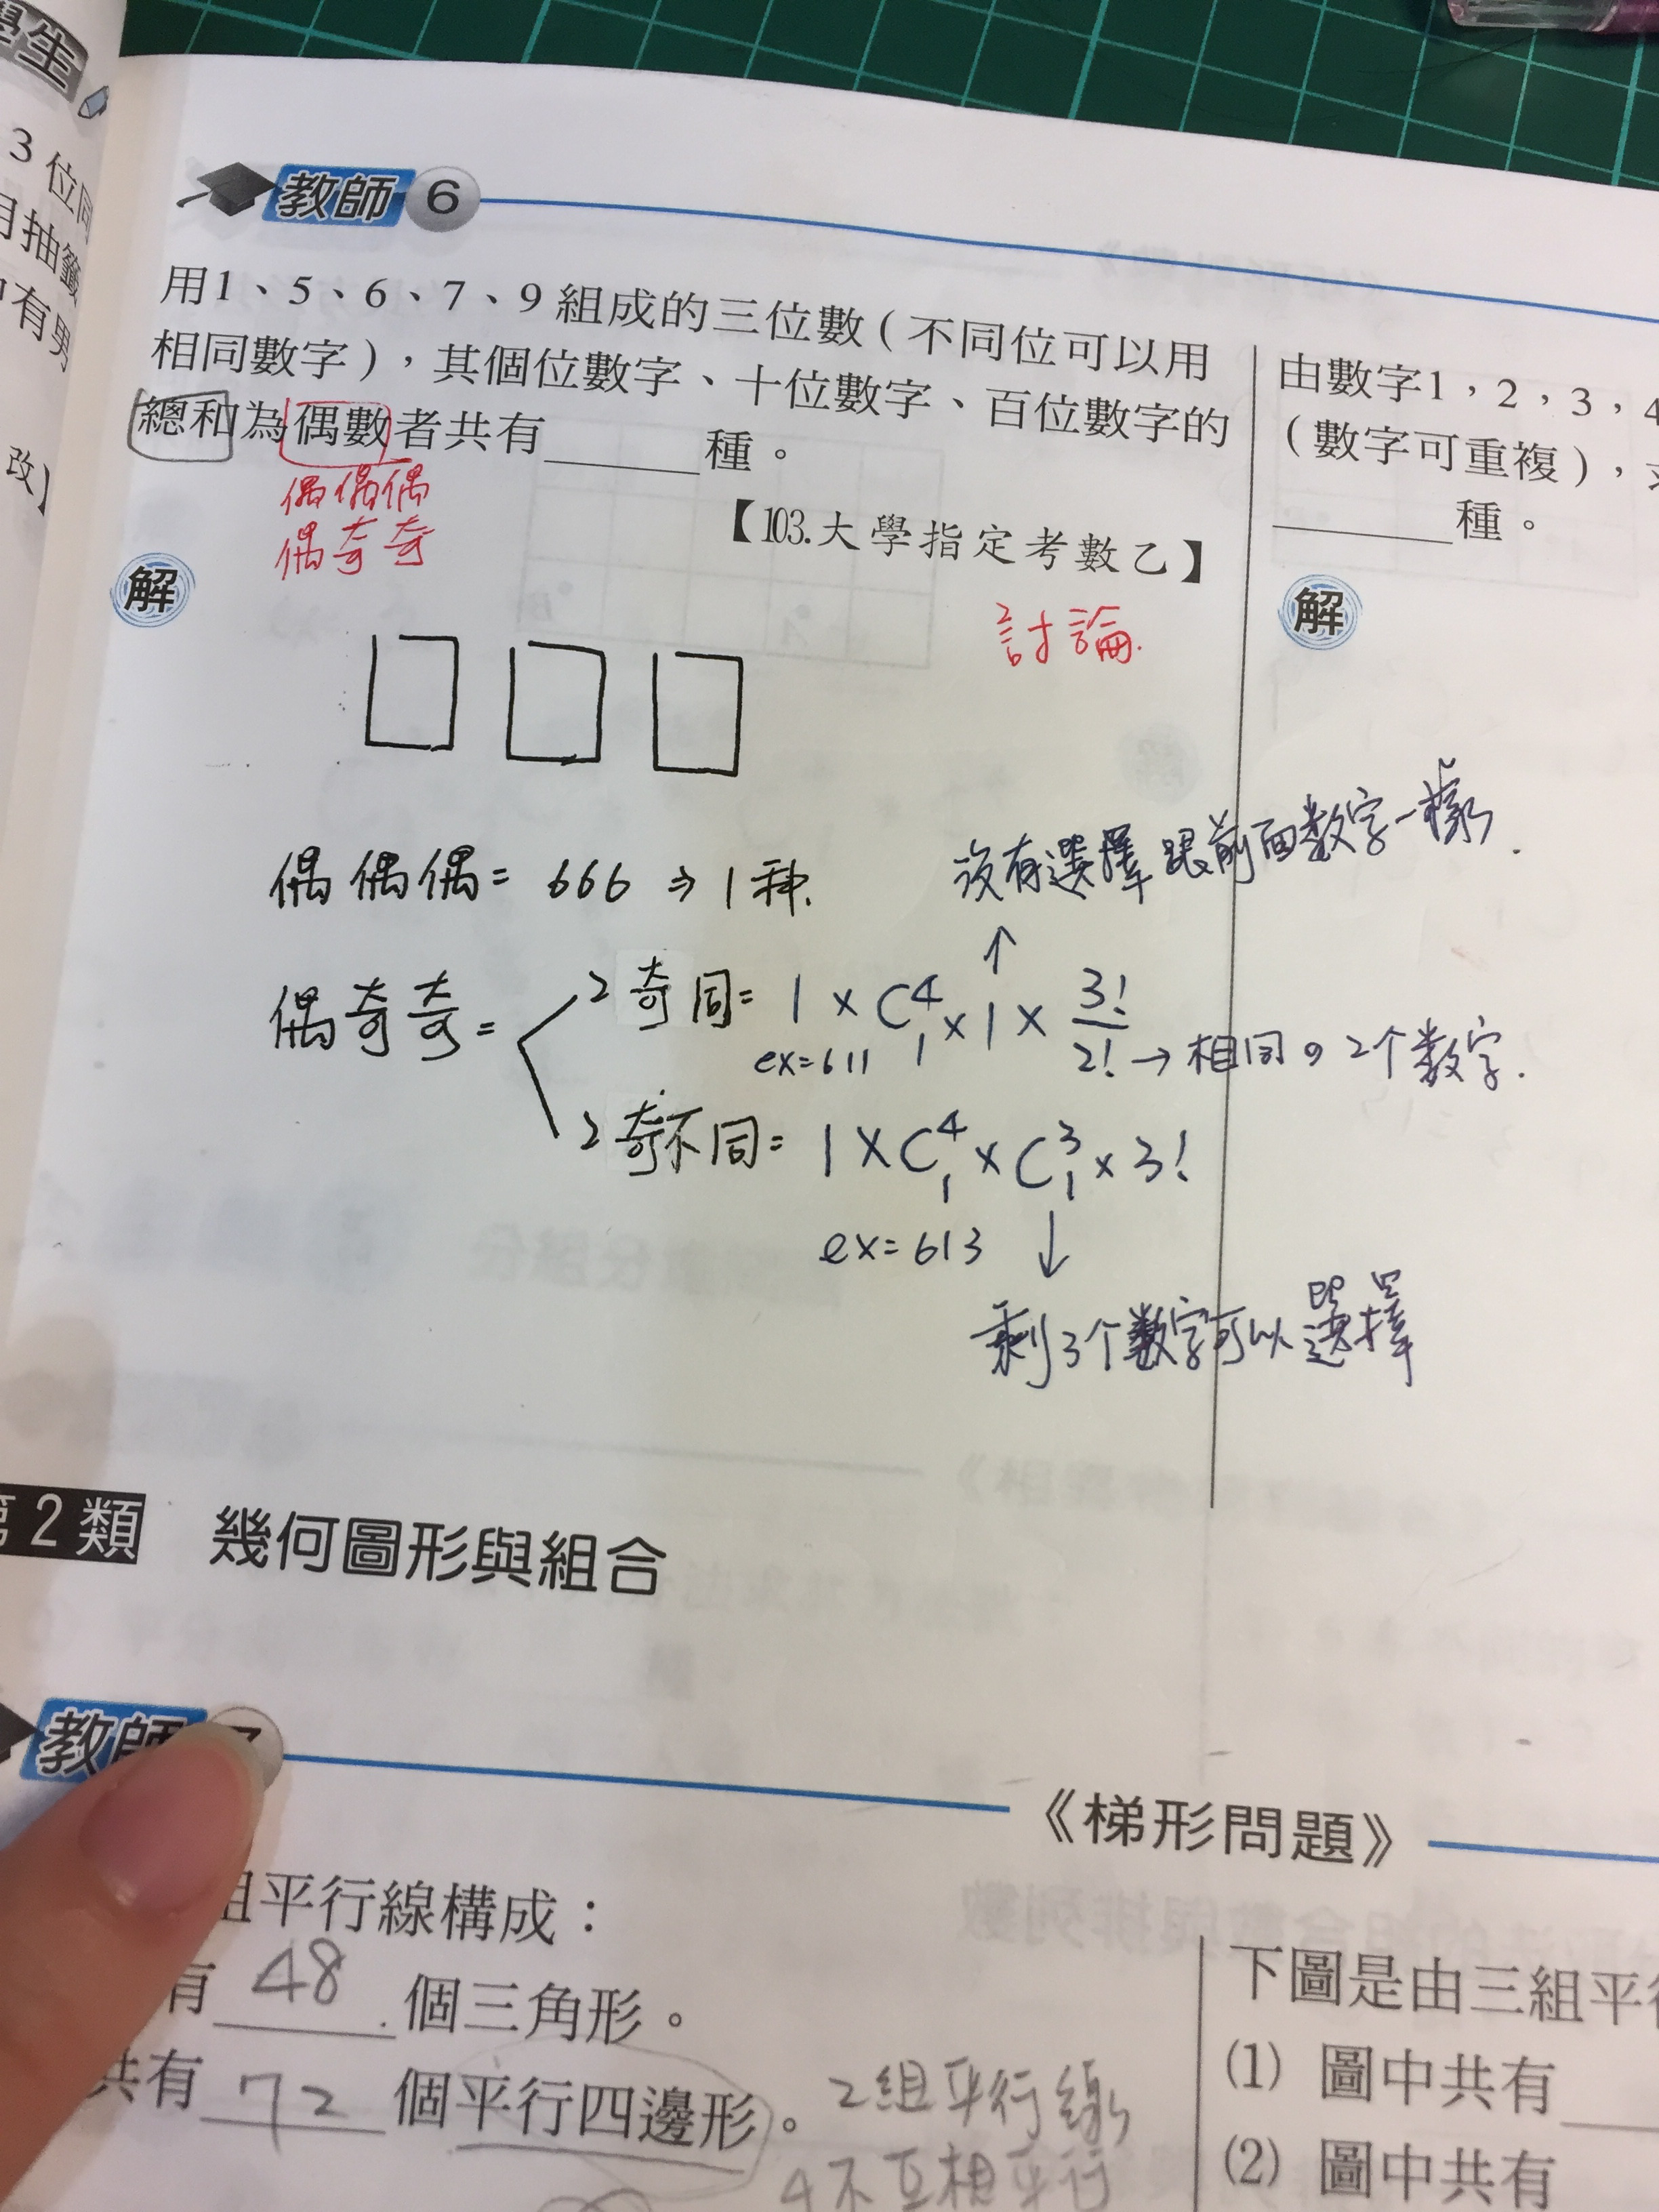 學生
3 位同
用抽籤
中有男
改】
教師 6
用1、5、6、7、9 組成的三位數 ( 不同位可以用
相同數字 ),其個位數字、十位數字、百位數字的
總和為偶數者共有______種。
偶偶偶
偶奇奇
【103.大學指定考數乙】
討論.
解
偶偶偶= 666 ⇒ 1 种.
沒有選擇 跟前面数字一樣.
↑
偶奇奇=
2奇同= 1 × C⁴₁ × 1 × 3!/2! → 相同の2个数字.
ex=611
2奇不同= 1 × C⁴₁ × C³₁ × 3!
ex=613 ↓
剩3个數字可以選擇
由數字1,2,3,4
( 數字可重複 ),
______種。
解
第2類 幾何圖形與組合
教師 7
《梯形問題》
組平行線構成:
有 48 個三角形。
共有 72 個平行四邊形。
2組平行線
不互相平行
下圖是由三組平行
(1) 圖中共有
(2) 圖中共有